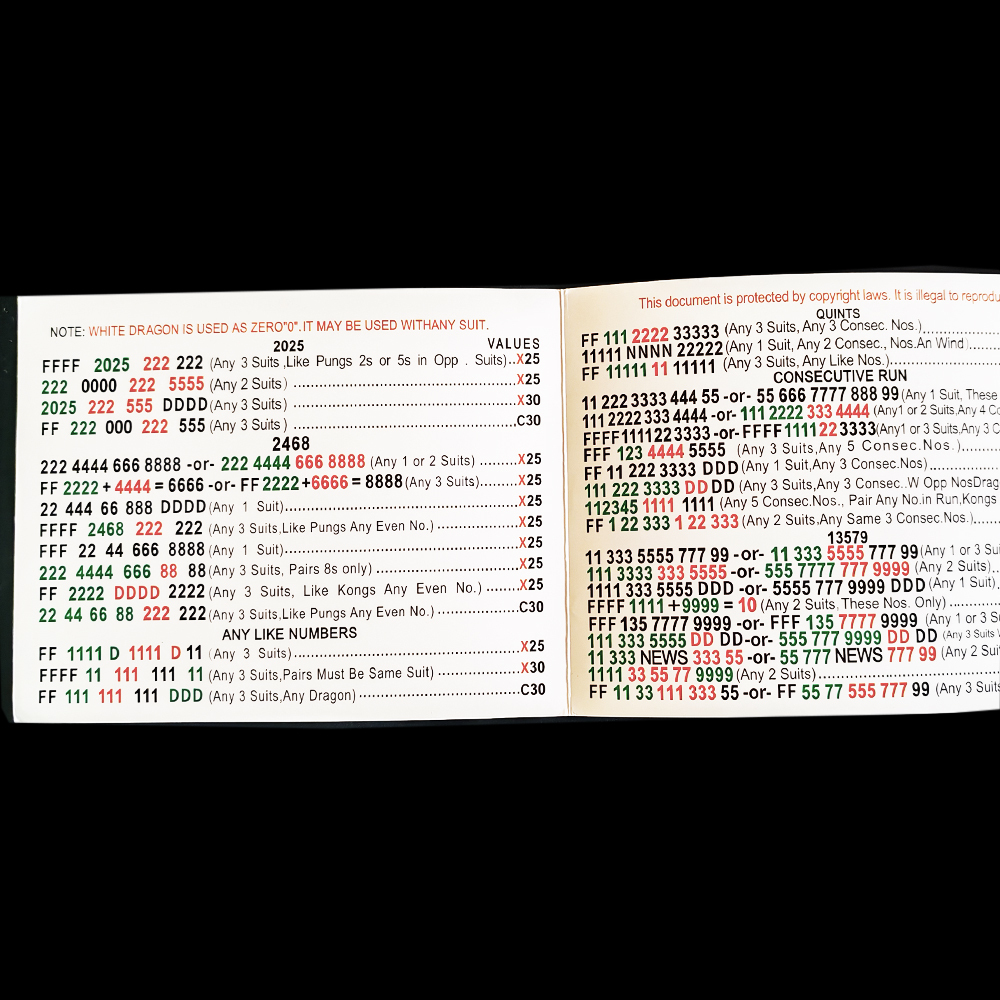 NOTE: WHITE DRAGON IS USED AS ZERO"0".IT MAY BE USED WITHANY SUIT.
2025 VALUES
FFFF 2025 222 222 (Any 3 Suits,Like Pungs 2s or 5s in Opp . Suits)..X25
222 0000 222 5555 (Any 2 Suits) ..........X25
2025 222 555 DDDD(Any 3 Suits) ..........X30
FF 222 000 222 555(Any 3 Suits ) ..........C30
2468
222 4444 666 8888 -or- 222 4444 666 8888 (Any 1 or 2 Suits) ........X25
FF 2222+ 4444 = 6666 -or- FF 2222+6666 = 8888(Any 3 Suits)........X25
22 444 66 888 DDDD(Any 1 Suit)..........X25
FFFF 2468 222 222 (Any 3 Suits,Like Pungs Any Even No.) ..........X25
FFF 22 44 666 8888(Any 1 Suit)..........X25
222 4444 666 88 88(Any 3 Suits, Pairs 8s only) ..........X25
FF 2222 DDDD 2222(Any 3 Suits, Like Kongs Any Even No.) ........X25
22 44 66 88 222 222(Any 3 Suits,Like Pungs Any Even No.) ..........C30
ANY LIKE NUMBERS
FF 1111 D 1111 D 11 (Any 3 Suits)..........X25
FFFF 11 111 111 11 (Any 3 Suits,Pairs Must Be Same Suit) ..........X30
FF 111 111 111 DDD (Any 3 Suits,Any Dragon)..........C30
This document is protected by copyright laws. It is illegal to
QUINTS
FF 111 2222 33333 (Any 3 Suits, Any 3 Consec. Nos.)..........
11111 NNNN 22222(Any 1 Suit, Any 2 Consec., Nos.An Wind)..........
FF 11111 11 11111 (Any 3 Suits, Any Like Nos.)..........
CONSECUTIVE RUN
11 222 3333 444 55 -or- 55 666 7777 888 99(Any 1 Suit, These
111 2222 333 4444 -or- 111 2222 333 4444 (Any1 or 2 Suits,Any 4
FFFF1111223333 -or-FFFF1111223333(Any1 or 3 Suits,Any 3
FFF 123 4444 5555 (Any 3 Suits,Any 5 Consec.Nos.)..........
FF 11 222 3333 DDD (Any 1 Suit,Any 3 Consec.Nos)..........
111 222 3333 DD DD (Any 3 Suits,Any 3 Consec..W Opp NosDrag
112345 1111 1111 (Any 5 Consec.Nos., Pair Any No.in Run,Kongs
FF 1 22 333 1 22 333(Any 2 Suits,Any Same 3 Consec.Nos.)..........
13579
11 333 5555 777 99 -or- 11 333 5555 777 99(Any 1 or 3
111 3333 333 5555 -or- 555 7777 777 9999 (Any 2 Suits)..
1111 333 5555 DDD -or- 5555 777 9999 DDD (Any 1 Suit)
FFFF 1111 +9999 = 10 (Any 2 Suits,These Nos. Only) ..........
FFF 135 7777 9999 -or- FFF 135 7777 9999 (Any 1 or 3
111 333 5555 DD DD-or- 555 777 9999 DD DD (Any 3 Suits
11 333 NEWS 333 55 -or- 55 777 NEWS 777 99 (Any 2
1111 33 55 77 9999(Any 2 Suits)..........
FF 11 33 111 333 55 -or- FF 55 77 555 777 99 (Any 3